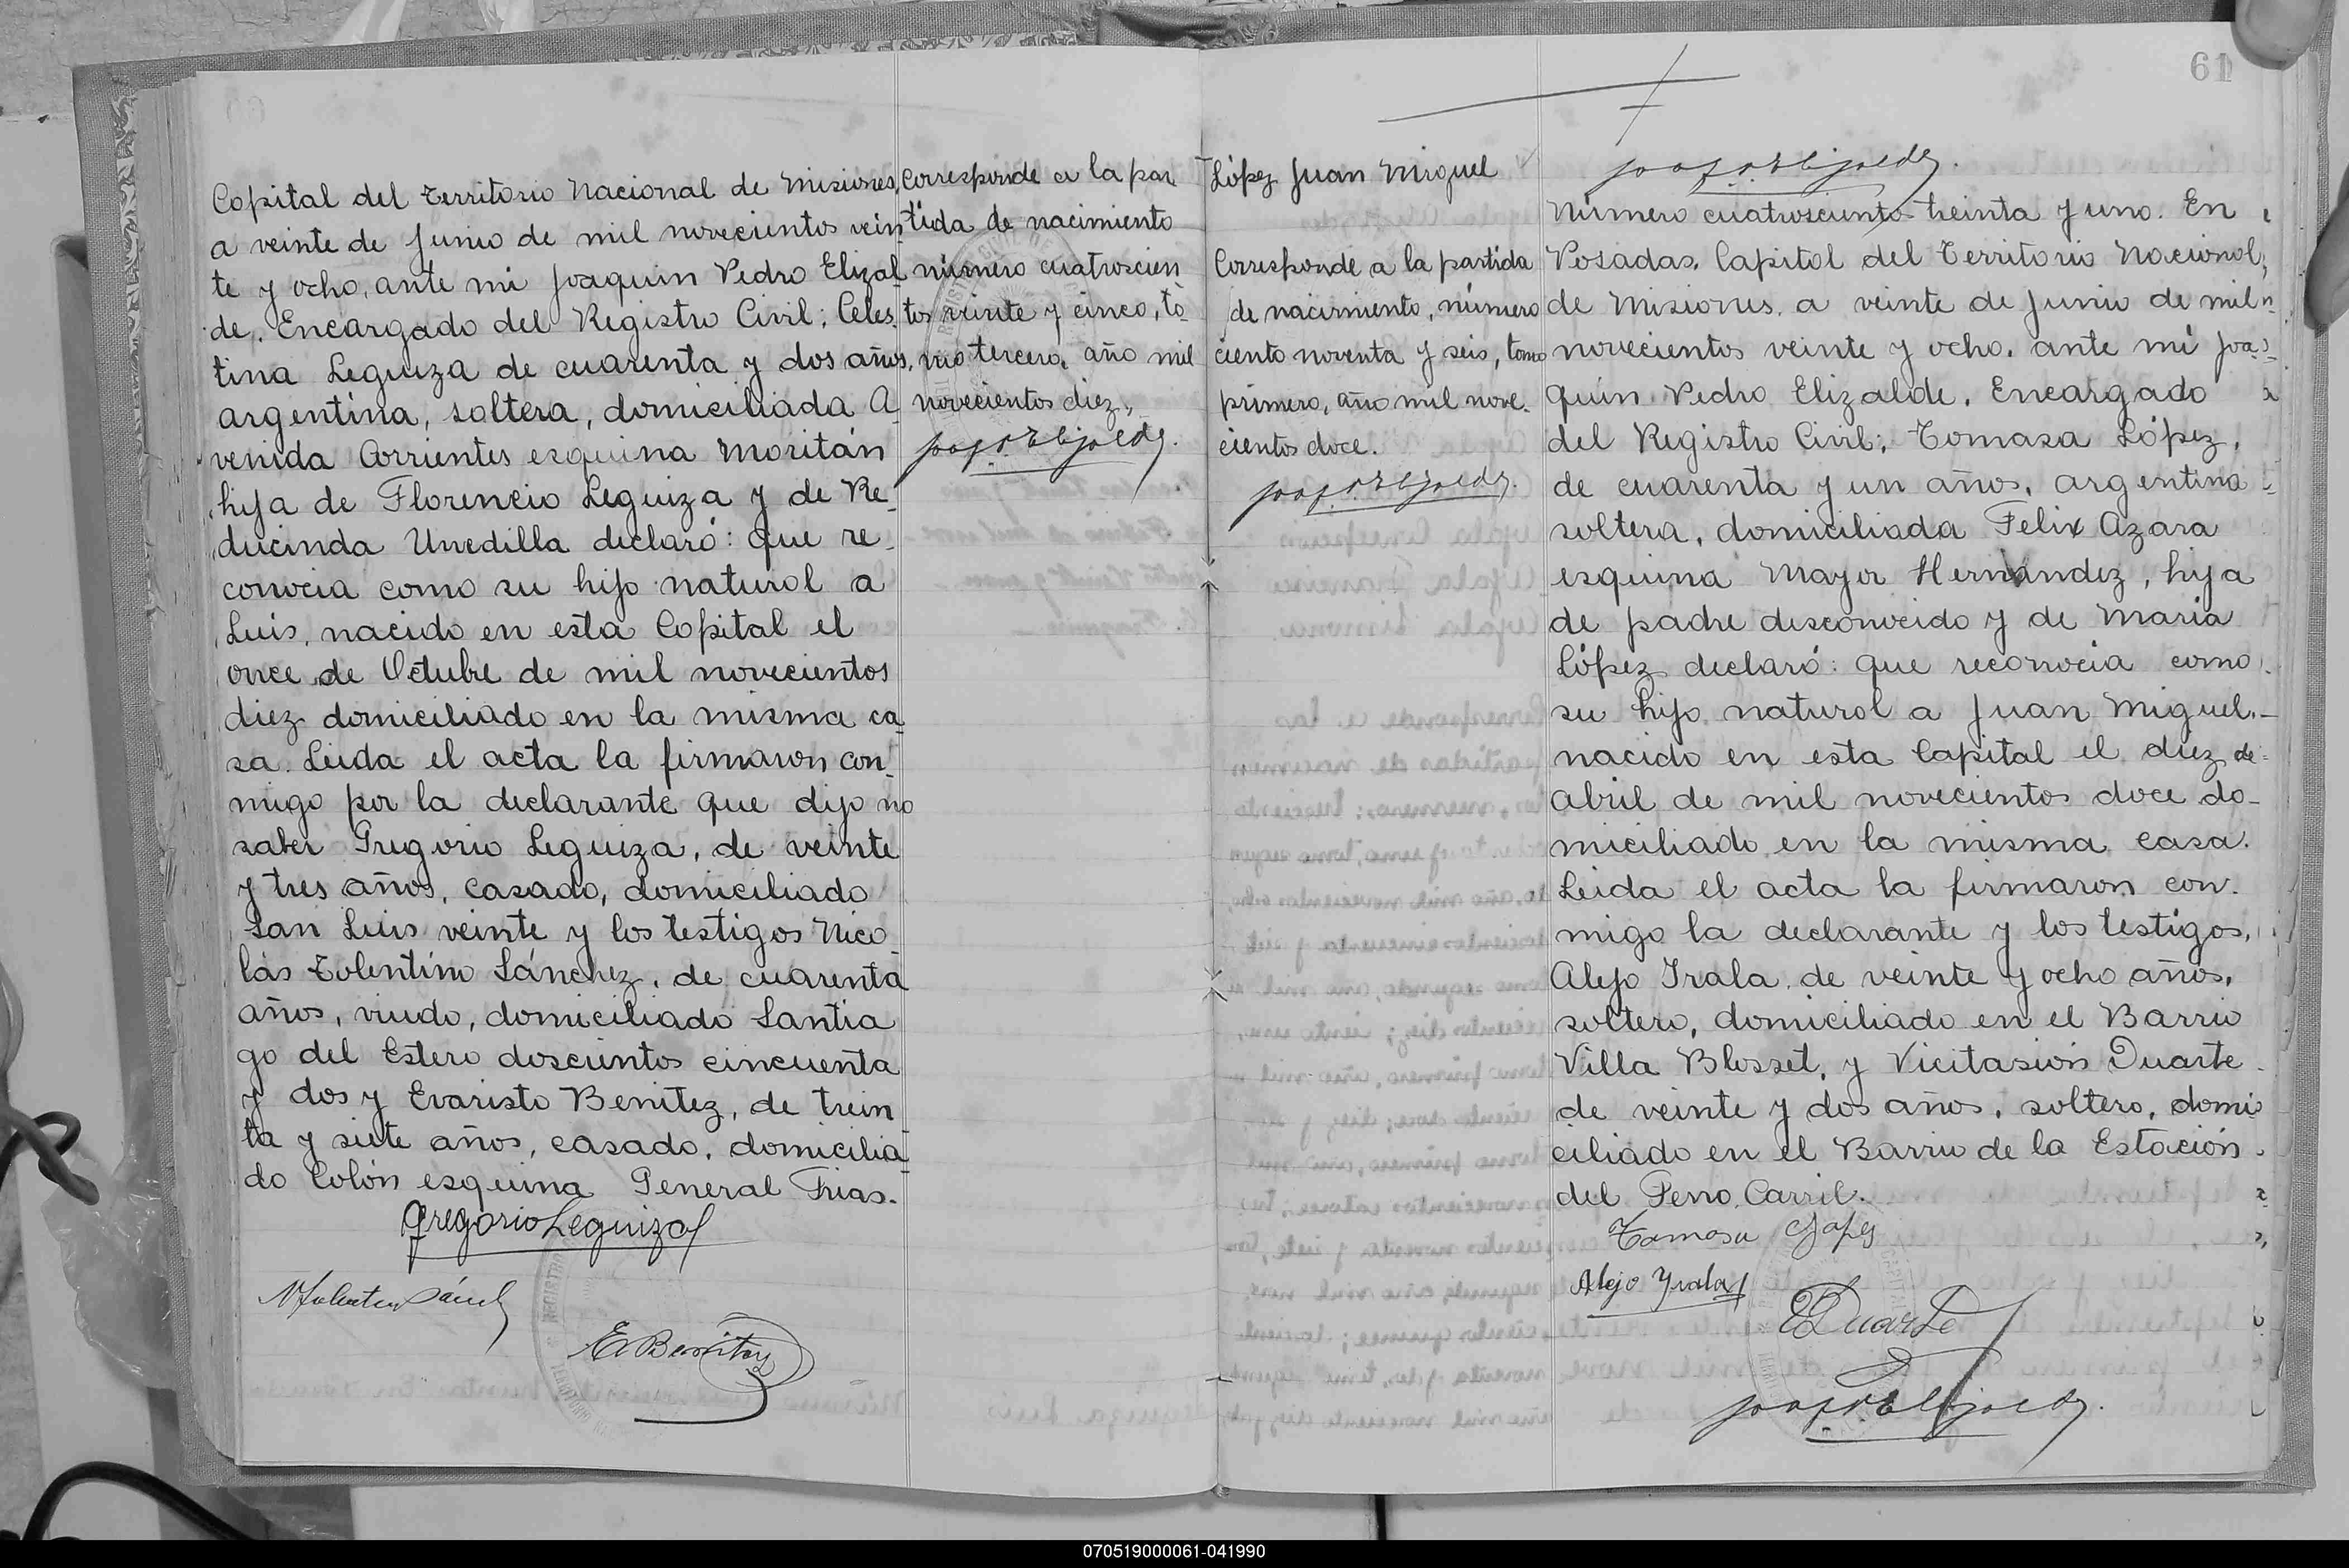 Capital del Territorio Nacional de Misiones,
a veinte de Junio de mil novecientos vein
te y ocho, ante mi Joaquin Pedro Elizal
de, Encargado del Registro Civil; Celes
tina Leguiza de cuarenta y dos años,
argentina, soltera, domiciliada A
venida Corrientes esquina Moritán
hija de Florencio Leguiza y de Re
ducinda Unedilla declaró: que re
conocia como su hijo natural a
Luis, nacido en esta Capital el
once de Octubre de mil novecientos
diez domiciliado en la misma ca
sa. Leida el acta la firmaron con
migo por la declarante que dijo no
saber Gregorio Leguiza, de veinte
y tres años, casado, domiciliado
San Luis veinte y los testigos Nico
lás Tolentino Sánchez, de cuarenta
años, viudo, domiciliado Santia
go del Estero doscientos cincuenta
y dos y Evaristo Benitez, de trein
ta y siete años, casado, domicilia
do Colón esquina General Frias.
Gregorio Leguiza
E. Benitez
Corresponde a la par
tida de nacimiento
número cuatroscien
tos veinte y cinco, to
mo tercero, año mil
novecientos diez,
61
López Juan Miguel
Corresponde a la partida
de nacimiento, número
ciento noventa y seis, tomo
primero, año mil nove
cientos doce.
Número cuatroscientos treinta y uno. En
Posadas, Capital del Territorio Nacional,
de Misiones, a veinte de Junio de mil
novecientos veinte y ocho, ante mí Joa
quin Pedro Elizalde, Encargado
del Registro Civil; Tomasa López,
de cuarenta y un años, argentina
soltera, domiciliada Felix Azara
esquina Mayor Hernández, hija
de padre desconocido y de Maria
López declaró: que reconocia como
su hijo natural a Juan Miguel,
nacido en esta Capital el diez de
Abril de mil novecientos doce do-
miciliado en la misma casa.
Leida el acta la firmaron con
migo la declarante y los testigos,
Alejo Irala, de veinte y ocho años,
soltero, domiciliado en el Barrio
Villa Blosset, y Vicitasión Duarte
de veinte y dos años, soltero, domi
ciliado en el Barrio de la Estación
del Ferro Carril.
Tomasa Lopes
Alejo Yrala
Duarte
070519000061-041990